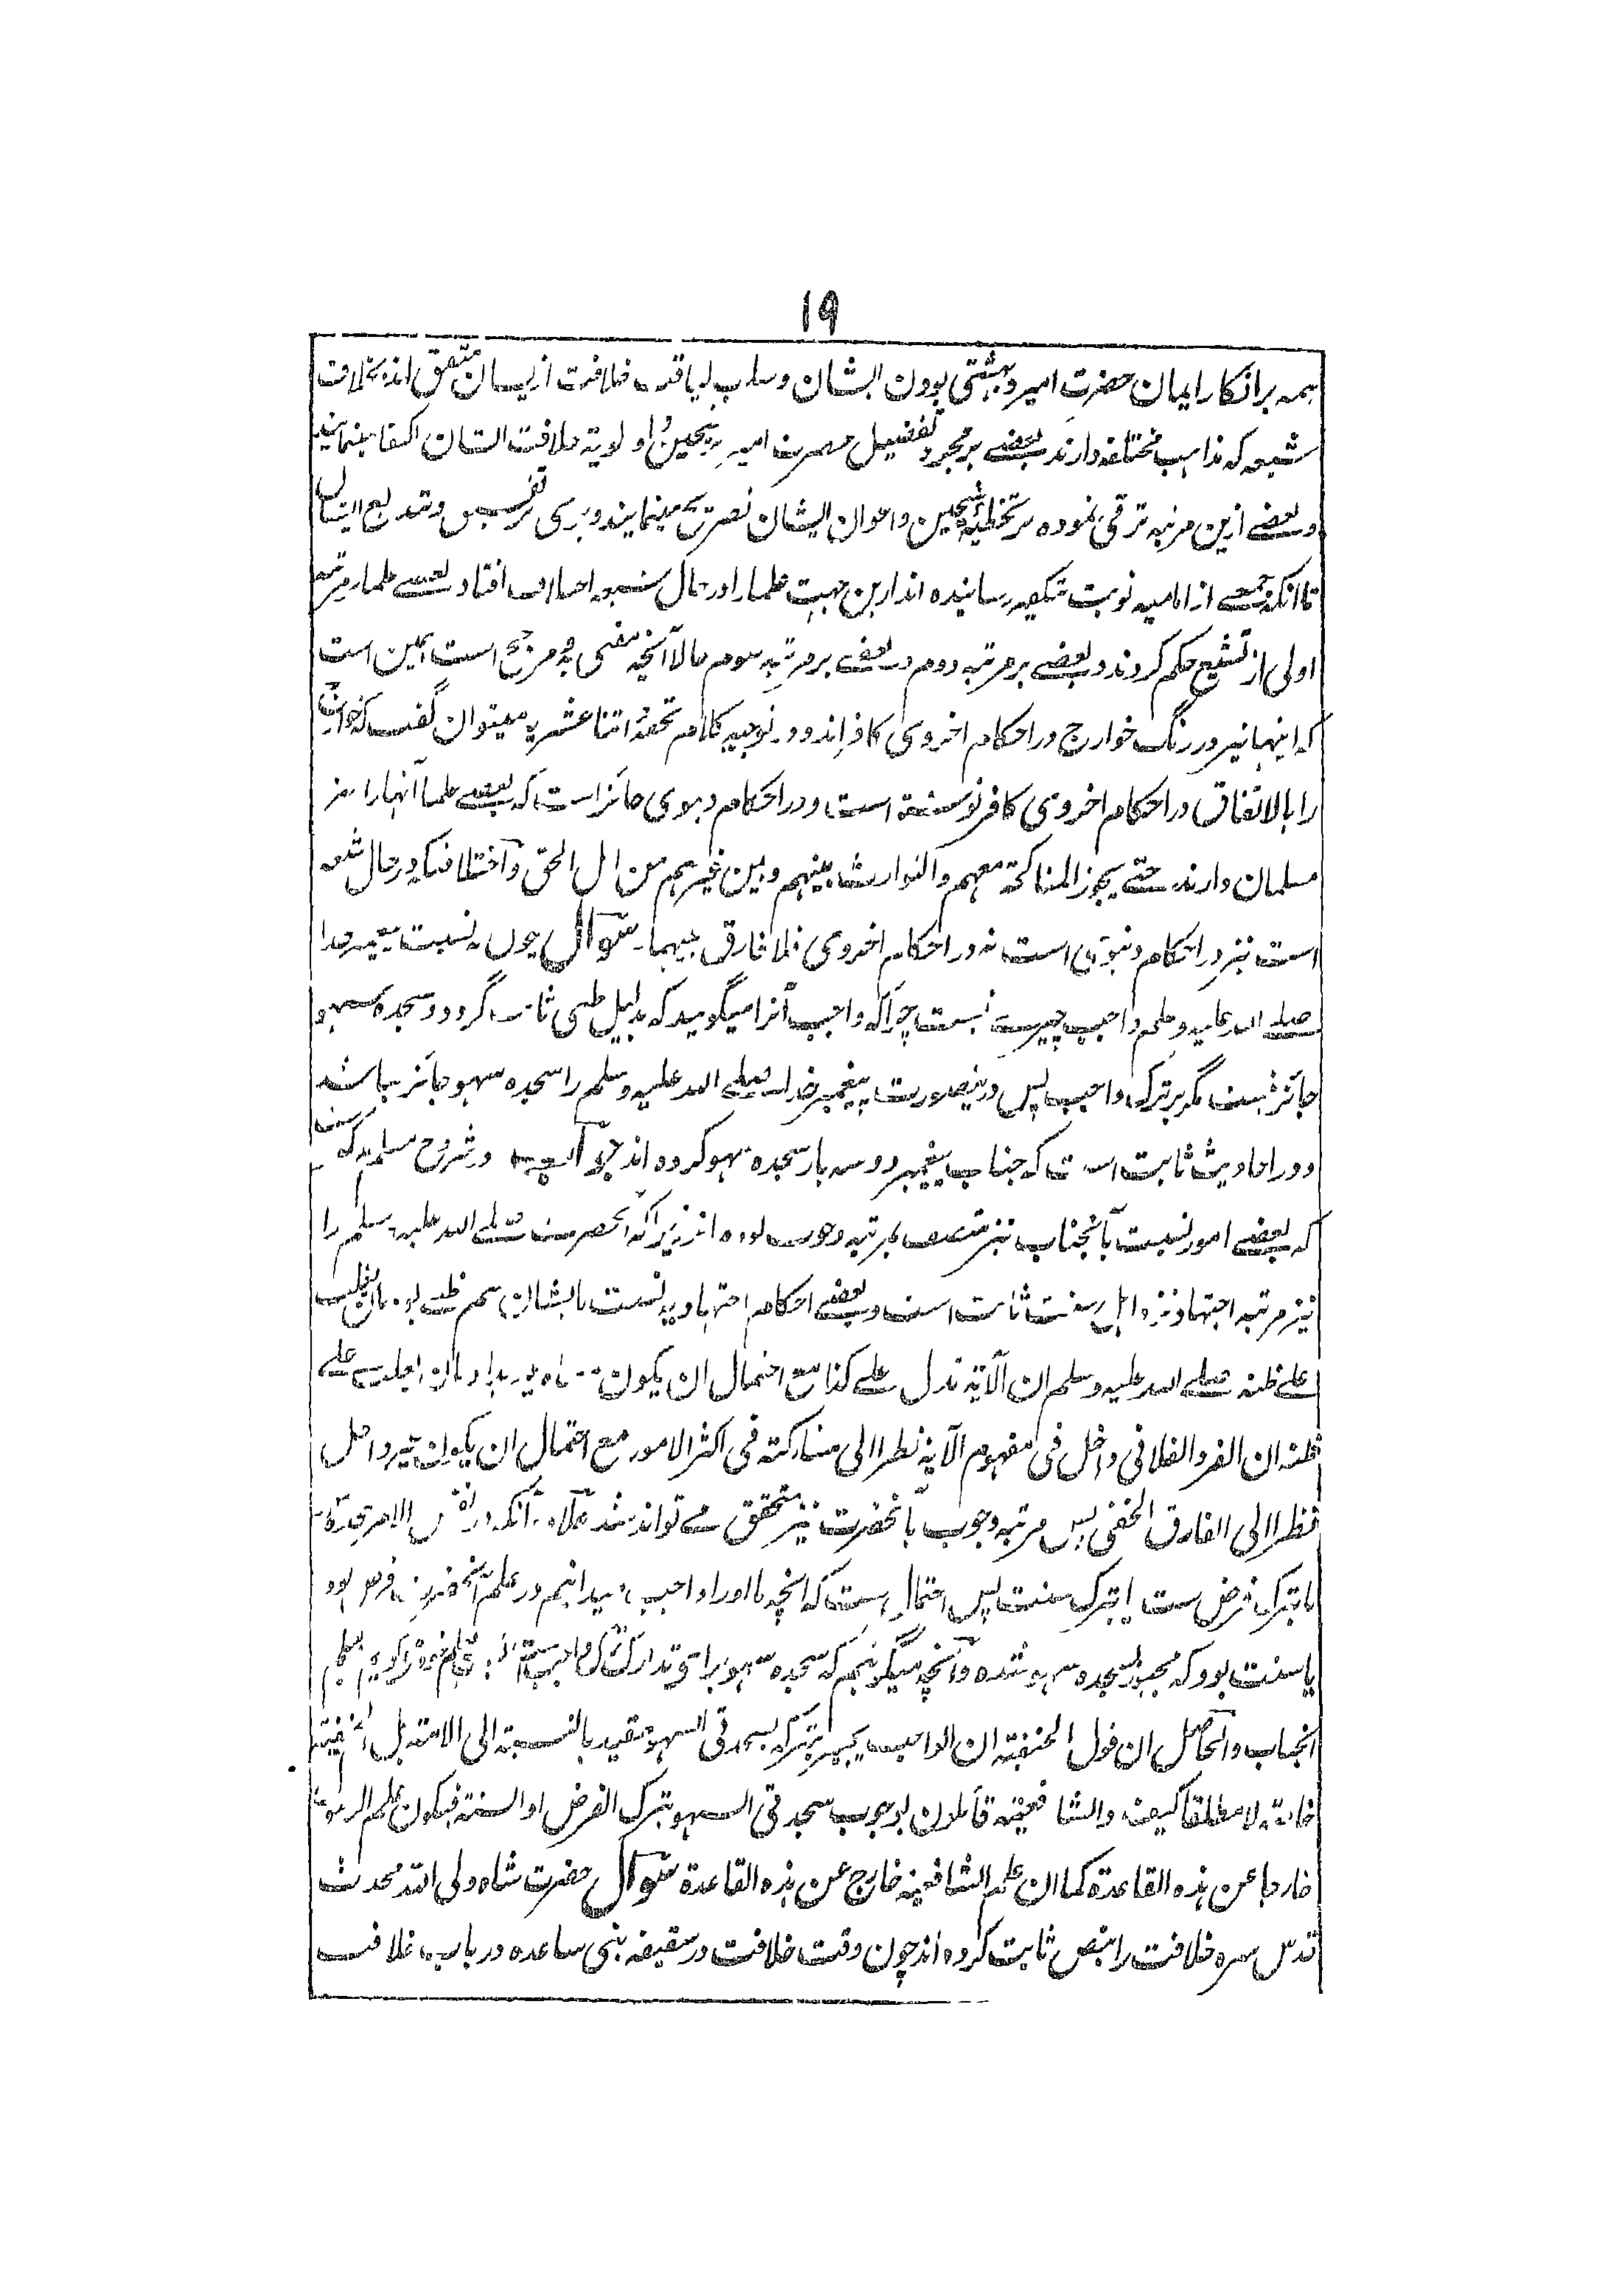 ۱۹
ہمہ بر انکار ایمان حضرت امیر و بہشتی بودن ایشان و سلب لیاقت خلافت ازیشان متفق اند بخلافت
شیعہ کہ مذاہب مختلفہ دارند بعضے بر مجرد تفضیل حضرت امیر بر شیخین و اولویۃ خلافت ایشان اکتفا مینمایند
و بعضے ازین مرتبہ ترقی نمودہ بر تخطیہ شیخین و اعوان ایشان تصریح مینمایند و برخی تفسیق و تبدیع ایشان
تا آنکہ جمعے از امامیہ نوبت بتکفیر رسانیدہ اند ازین جہت علما را در حال شیعہ اختلاف افتاد بعضے علما بر مرتبہ
اولی از تشیع حکم کردند و بعضے بر مرتبہ دوم و بعضے بر مرتبہ سوم حالا آنچہ مفتی بہ و مرجح است ہمین است
کہ اینہا نیز در رنگ خوارج در احکام اخروی کافر اند و در توجیہ کلام تحفہ اثنا عشریہ میتوان گفت کہ خوارج
را بالاتفاق در احکام اخروی کافر نوشتہ است و در احکام دنیوی جائز است کہ بعضے علما آنہا را
مسلمان دارند حتے یجوز المناکحۃ معہم والتوارث بینہم و بین غیرہم من اہل الحق و اختلافیکہ در حال شیعہ
است نیز در احکام دنیوی است نہ در احکام اخروی فلا فارق بینہما۔ سوال چون بہ نسبت پیغمبر خدا
صلے اللہ علیہ وسلم واجب چیزیست نیست چرا کہ واجب آنرا میگویند کہ بدلیل ظنی ثابت گردد و سجدہ سہو
جائز نیست مگر بر ترک واجب پس درینصورت پیغمبر خدا صلے اللہ علیہ وسلم را سجدہ سہو جائز نباشد
و در احادیث ثابت است کہ جناب پیغمبر دو سہ بار سجدہ سہو کردہ اند جواب در شروح مسلم
کہ بعضے امور نسبت بآنجناب نیز متصف بمرتبہ وجوب بودہ اند زیرا کہ آنحضرت صلے اللہ علیہ وسلم را
نیز مرتبہ اجتہاد نزد اہل سنت ثابت است و بعضے احکام اجتہادیہ نسبت بایشان ہم ظنے بود بان یغلب
علے ظنہ صلے اللہ علیہ وسلم ان الآیۃ تدل علے کذا مع احتمال ان یکون
ظنہ ان الفرد الفلانی داخل فی مفہوم الآیۃ نظرا الی مشارکتہ فی اکثر الامور مع احتمال ان یکون غیر داخل
نظرا الی الفارق الخفی پس مرتبہ وجوب بآنحضرت نیز متحقق مے تواند شد علاوہ آنکہ در نفس الامر
یا بترک فرض ست یا بترک سنت پس احتمال است کہ آنچہ ما او را واجب میدانیم در علم آنحضرت فرض بود
یا سنت بود کہ مجبور بسجدہ سہو شدہ و آنچہ میگوئیم کہ سجدہ سہو برای تدارک ترک واجب است
آنجناب والحاصل ان قول الحنفیۃ ان الواجب یجبر بترکہ بسجدتی السہو مقید بالنسبۃ الی الامۃ بل الحنفیۃ
خاصۃ لا مطلقا کیف والشافعیۃ قائلون بوجوب سجدتی السہو بترک الفرض او السنۃ فیکون علم الرسول
خارجا عن ہذہ القاعدۃ کما ان علم الشافعیۃ خارج عن ہذہ القاعدۃ سوال حضرت شاہ ولی اللہ محدث
قدس سرہ خلافت را بنص ثابت کردہ اند چون وقت خلافت در سقیفہ بنی ساعدہ در باب خلافت